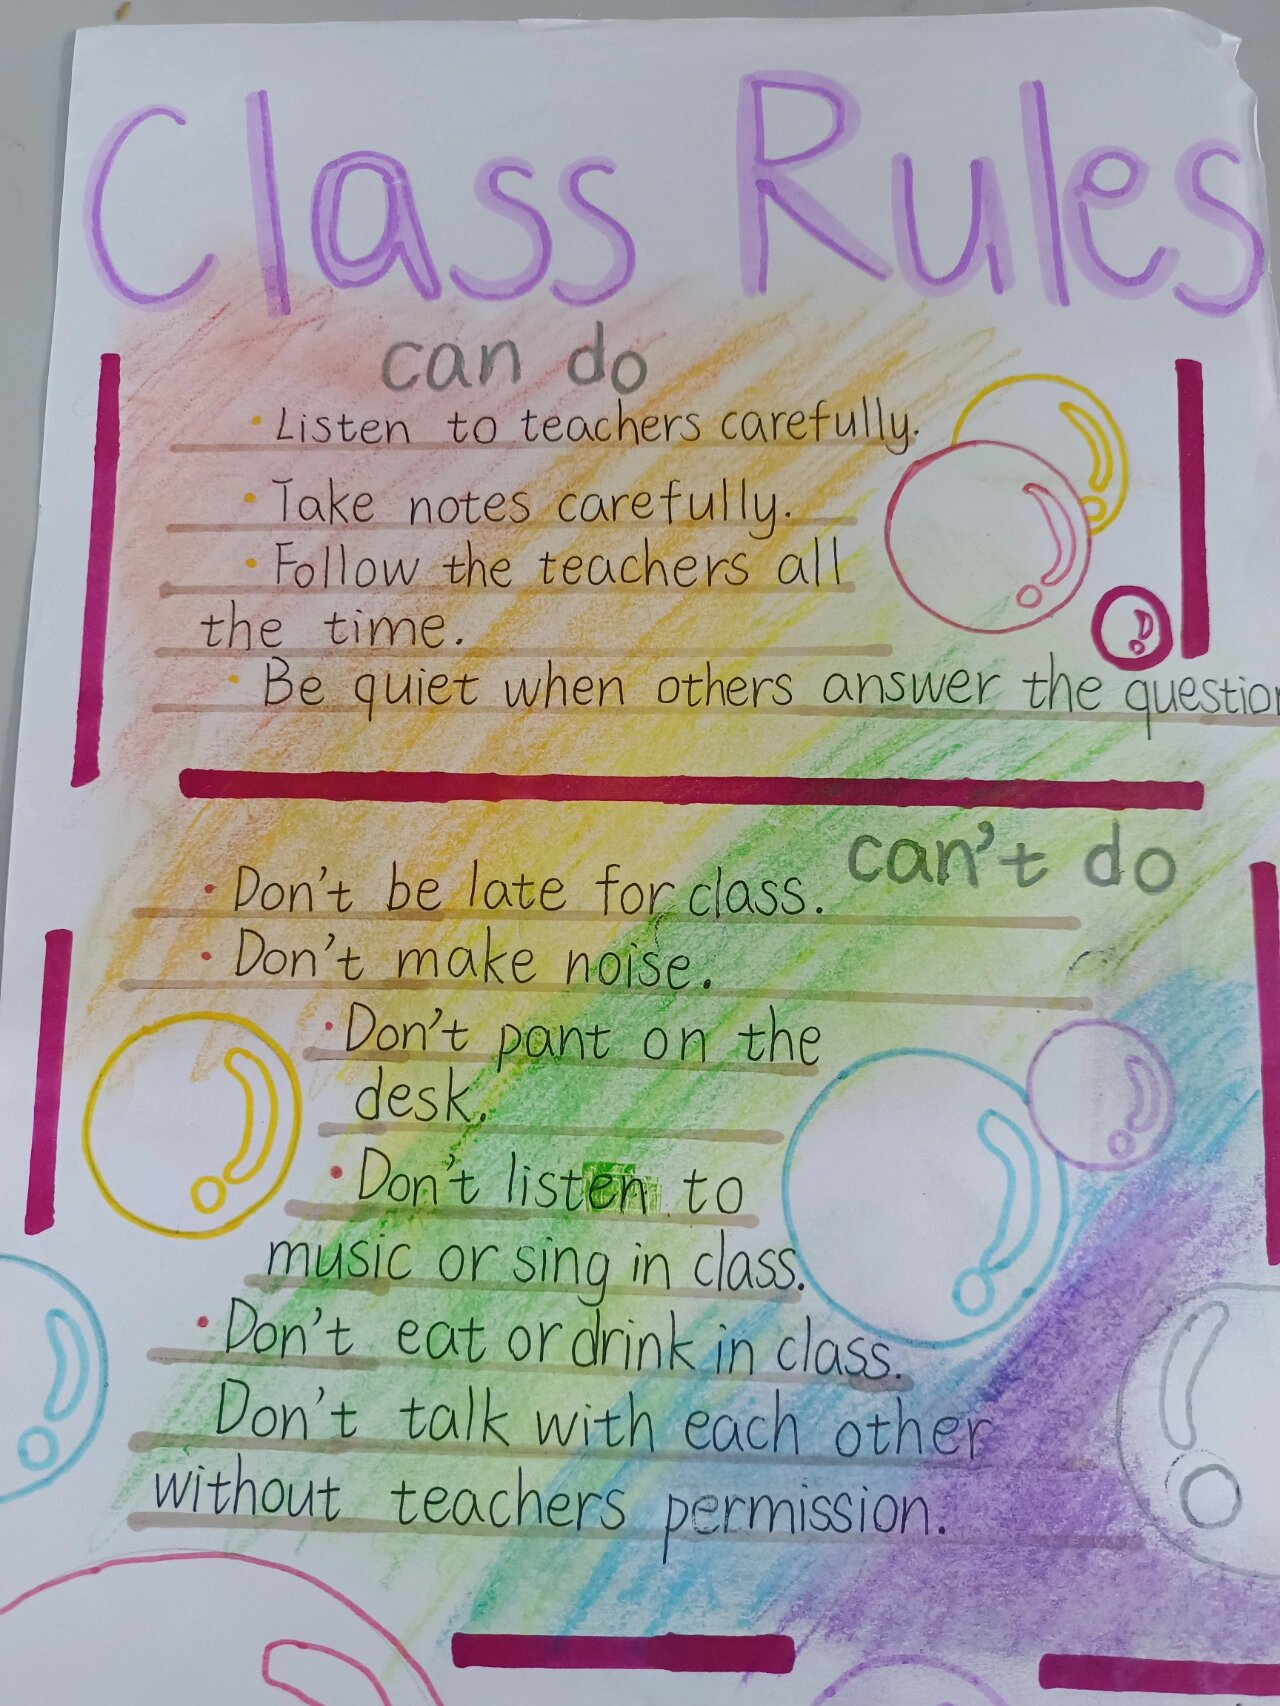 Class Rules
can do
· Listen to teachers carefully.
· Take notes carefully.
· Follow the teachers all
the time.
· Be quiet when others answer the question
can't do
· Don't be late for class.
· Don't make noise.
· Don't pant on the
desk.
· Don't listen to
music or sing in class.
· Don't eat or drink in class.
Don't talk with each other
without teachers permission.